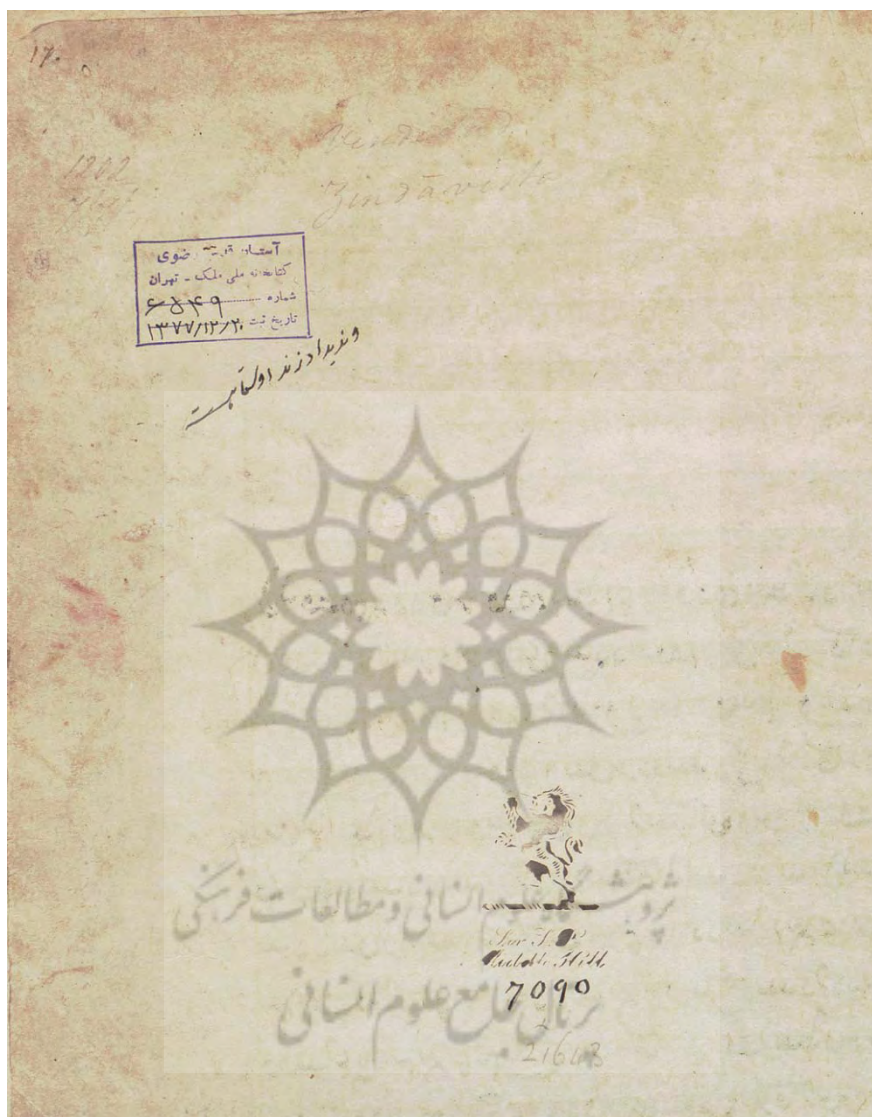 17.
1202
Vendidad
Zindavista
آستان قدس رضوی
کتابخانه ملی ملک - تهران
شماره ۶۵۴۹
تاریخ ثبت ۱۳۷۷/۱۲/۲۰
وندیداد زند اوستا است
پژوهشگاه علوم انسانی و مطالعات فرهنگی
پرتال جامع علوم انسانی
Middle Hill
7090
21643